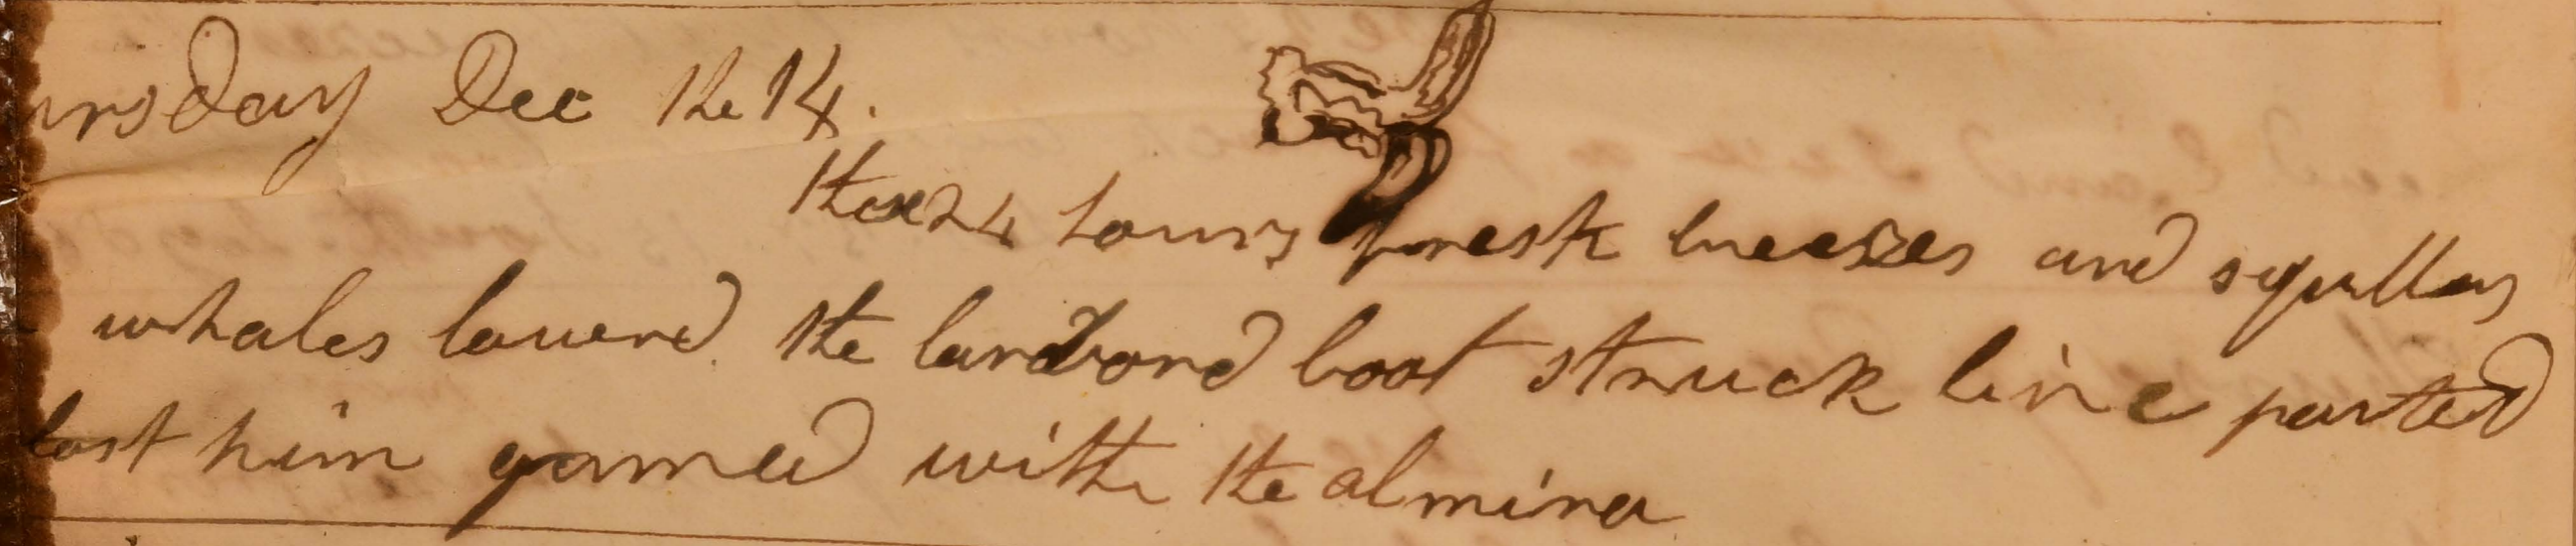 ursday Dec the 14.
these 24 hours fresk breeszes and squllay
whales lowerd. the lardbord boat struck line parted
lost him gamed with the almira